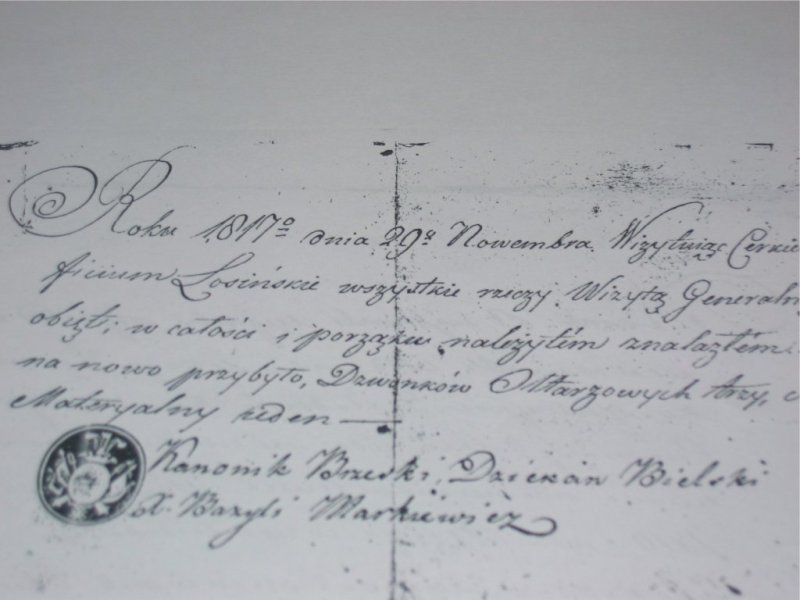 Roku 1817º dnia 29º Nowembra Wizytuiąc Cerkie
ficium Łosińskie wszystkie rzeczy Wizytą Generalną
obięte; w całości i porządku należytém znalazłem.
na nowo przybyło, Dzwonków Ołtarzowych trzy,
Materyalny ieden —
Kanonik Brzeski, Dziekan Bielski
X. Bazyli Markiewicz